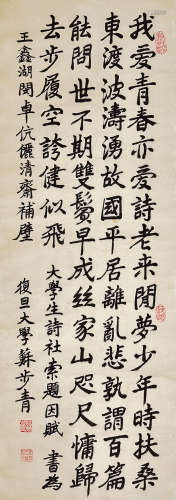 我爱青春亦爱詩老来閒夢少年時扶桑
東渡波濤湧故國平居離亂悲孰謂百篇
能問世不期雙鬢早成絲家山咫尺慵歸
去步履空誇健似飛
大學生詩社索題因賦 書為
王鑫湖閔卓伉儷清齋補壁
復旦大學蘇步青